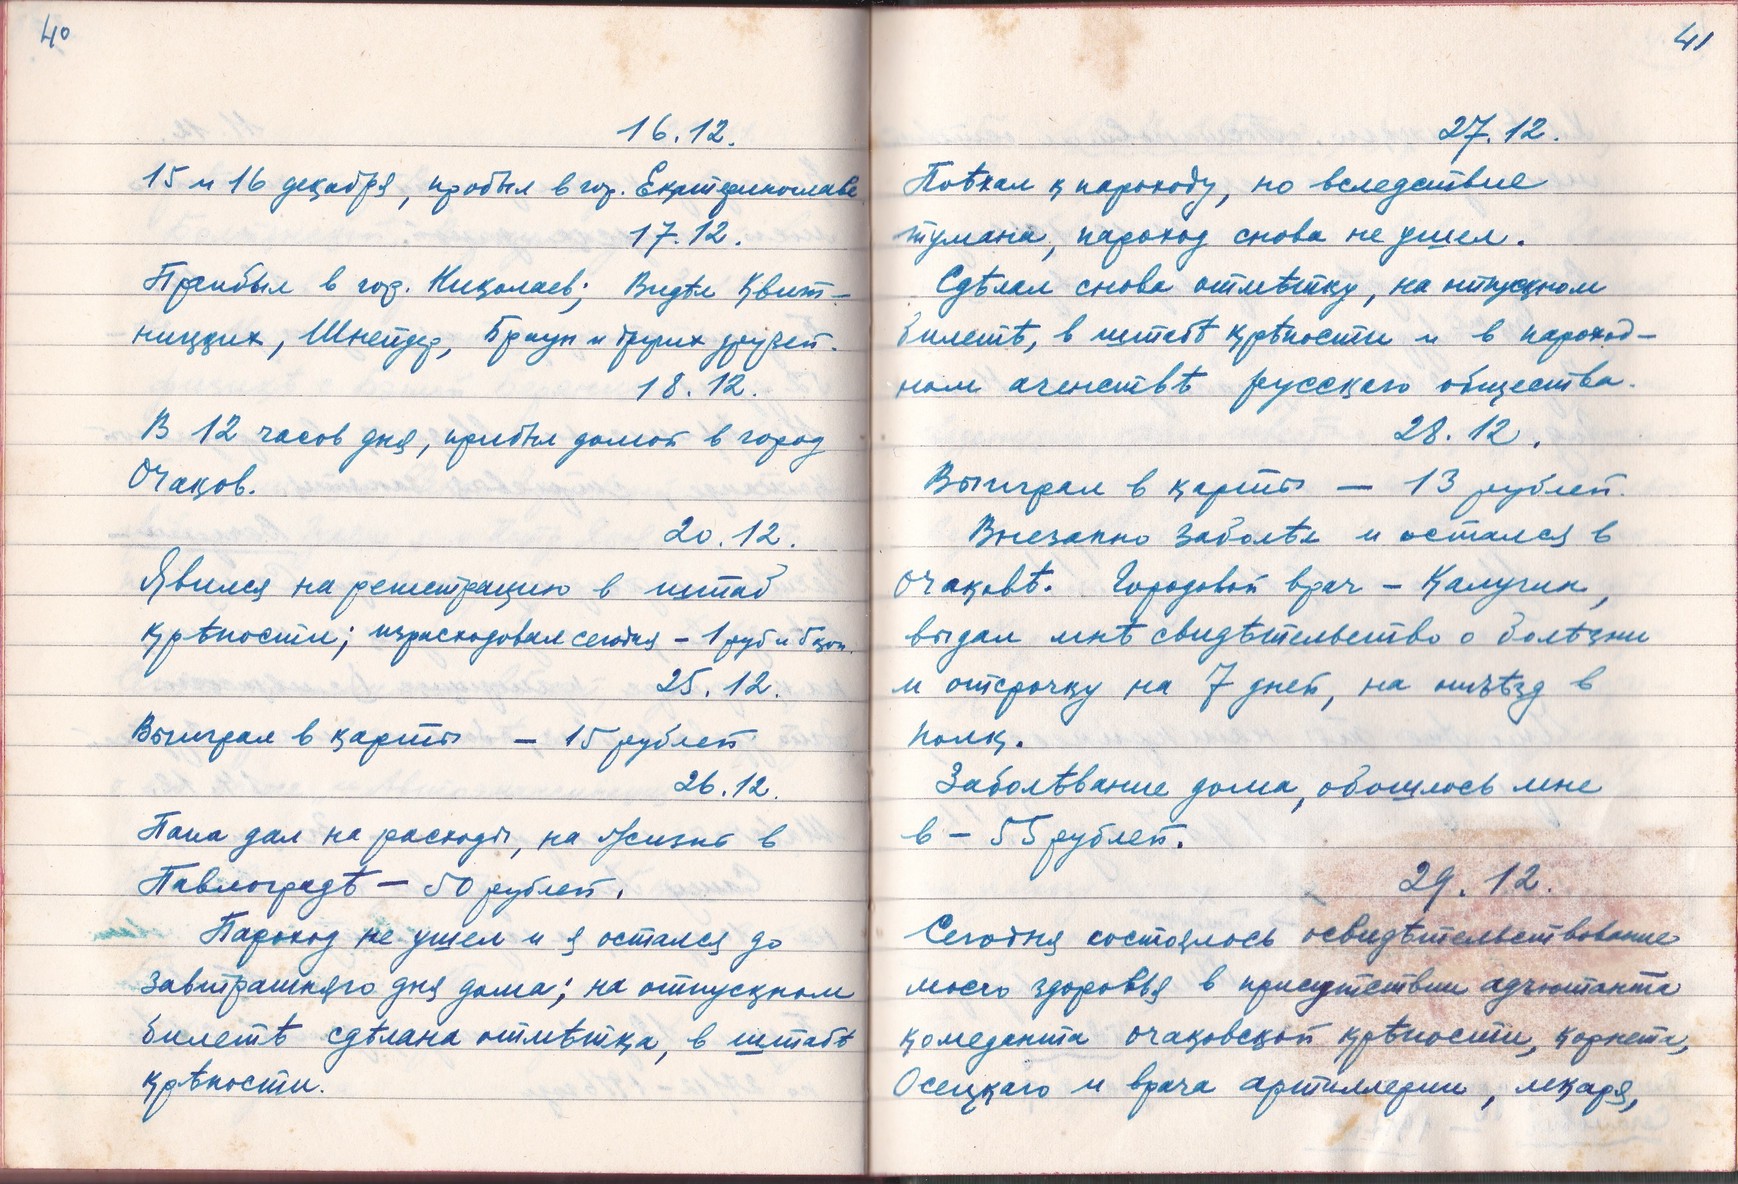 40
16.12.
15 и 16 декабря, пробыл в гор. Екатеринославе
17.12.
Прибыл в гор. Николаев; Видѣл Квит-
ницких, Шнейдер, Браун и других друзей.
18.12.
В 12 часов дня, прибыл домой в город
Очаков.
20.12.
Явился на регистрацию в штаб
крѣпости; израсходовал сегодня – 1 руб и 6 коп.
25.12.
Выиграл в карты – 15 рублей
26.12.
Папа дал на расходы, на жизнь в
Павлоградѣ – 50 рублей.
Пароход не ушел и я остался до
завтрашняго дня дома; на отпускном
билетѣ сдѣлана отмѣтка, в штабѣ
крѣпости.
41
27.12.
Поѣхал к пароходу, но вследствие
тумана, пароход снова не ушел.
Сдѣлал снова отмѣтку, на отпускном
билетѣ, в штабѣ крѣпости и в пароход-
ном агенствѣ русскаго общества.
28.12.
Выиграл в карты – 13 рублей.
Внезапно заболѣл и остался в
Очаковѣ. Городовой врач – Калугин,
выдал мнѣ свидѣтельство о болѣзни
и отсрочку на 7 дней, на отъѣзд в
полк.
Заболѣвание дома, обошлось мне
в – 55 рублей.
29.12.
Сегодня состоялось освидѣтельствование
моего здоровья в присутствии адъютанта
комеданта очаковской крѣпости, корнета,
Осецкаго и врача артиллерии, лекаря,